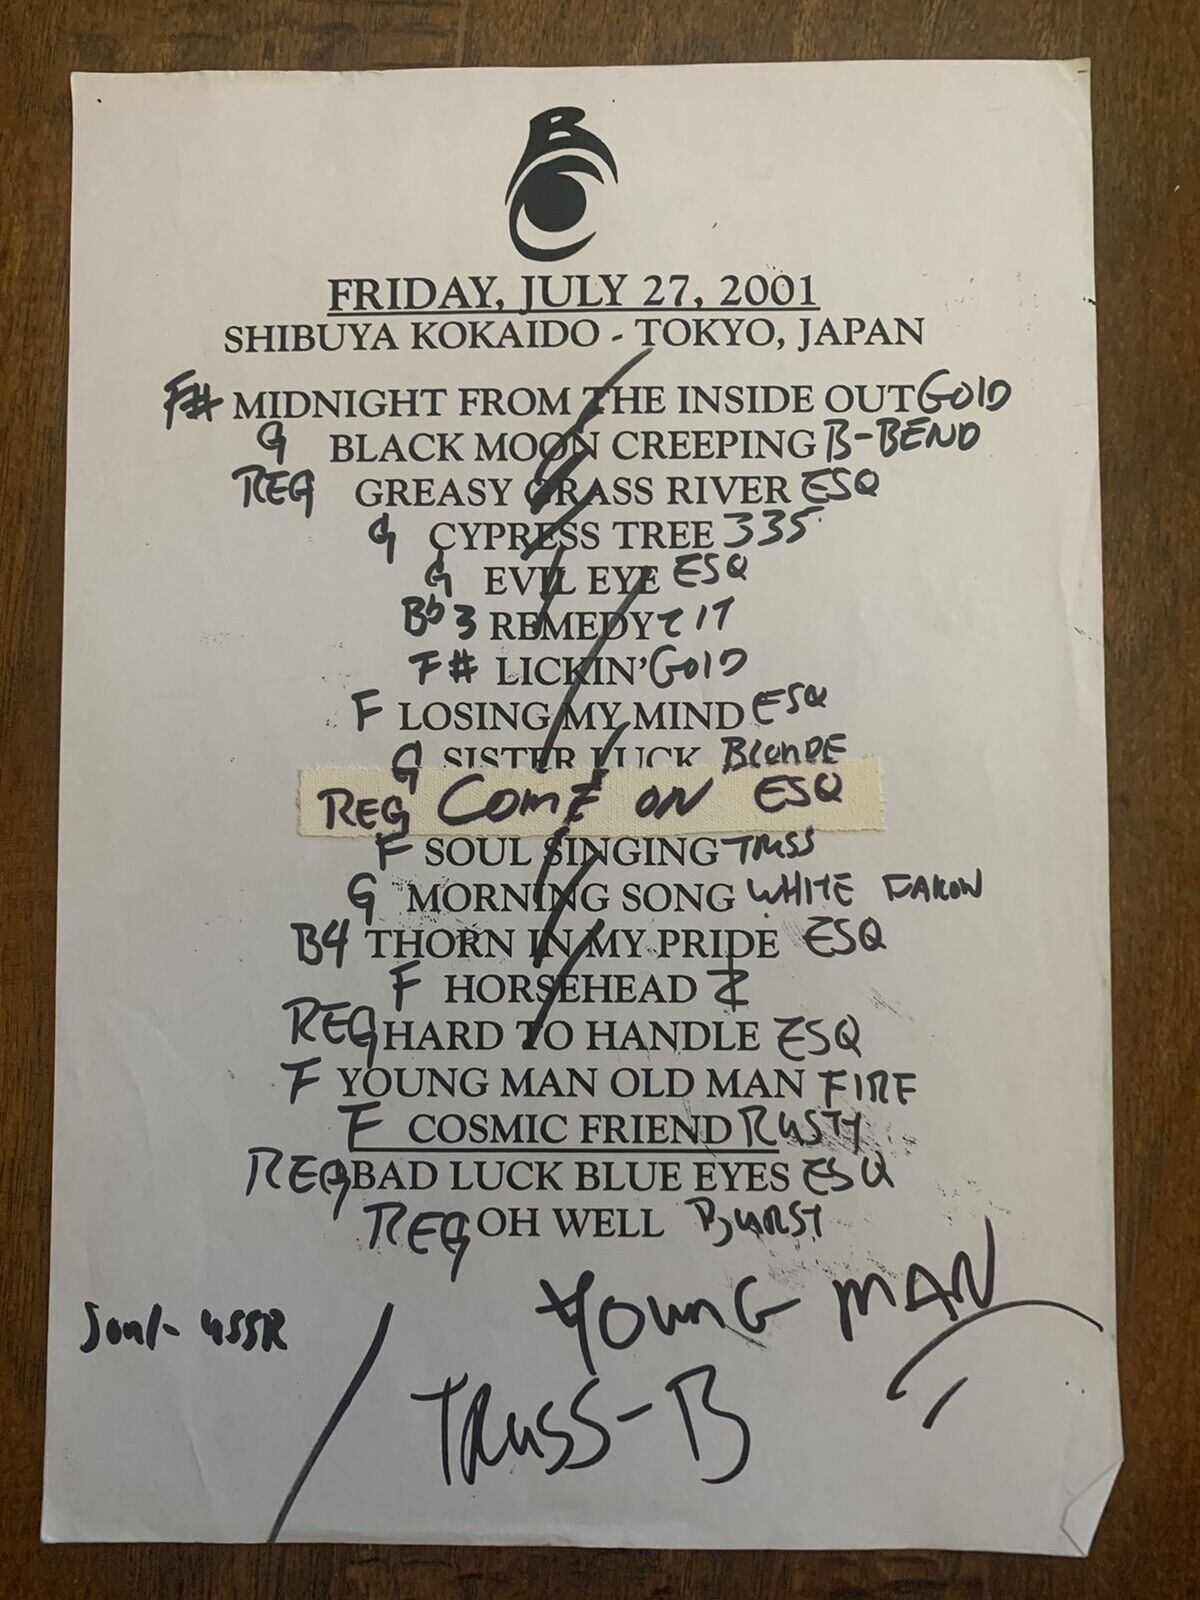 B C
FRIDAY, JULY 27, 2001
SHIBUYA KOKAIDO - TOKYO, JAPAN
F# MIDNIGHT FROM THE INSIDE OUT GOLD
G BLACK MOON CREEPING B-BEND
REG GREASY GRASS RIVER ESQ
G CYPRESS TREE 335
G EVIL EYE ESQ
Bb 3 REMEDY
F# LICKIN' GOLD
F LOSING MY MIND ESQ
G SISTER LUCK BLONDE
REG COME ON ESQ
F SOUL SINGING TRUSS
G MORNING SONG WHITE FALCON
B4 THORN IN MY PRIDE ESQ
F HORSEHEAD Z
REG HARD TO HANDLE ESQ
F YOUNG MAN OLD MAN FIRE
F COSMIC FRIEND RUSTY
REG BAD LUCK BLUE EYES ESQ
REG OH WELL BURST
YOUNG MAN
Soul- USSR
TRUSS-B